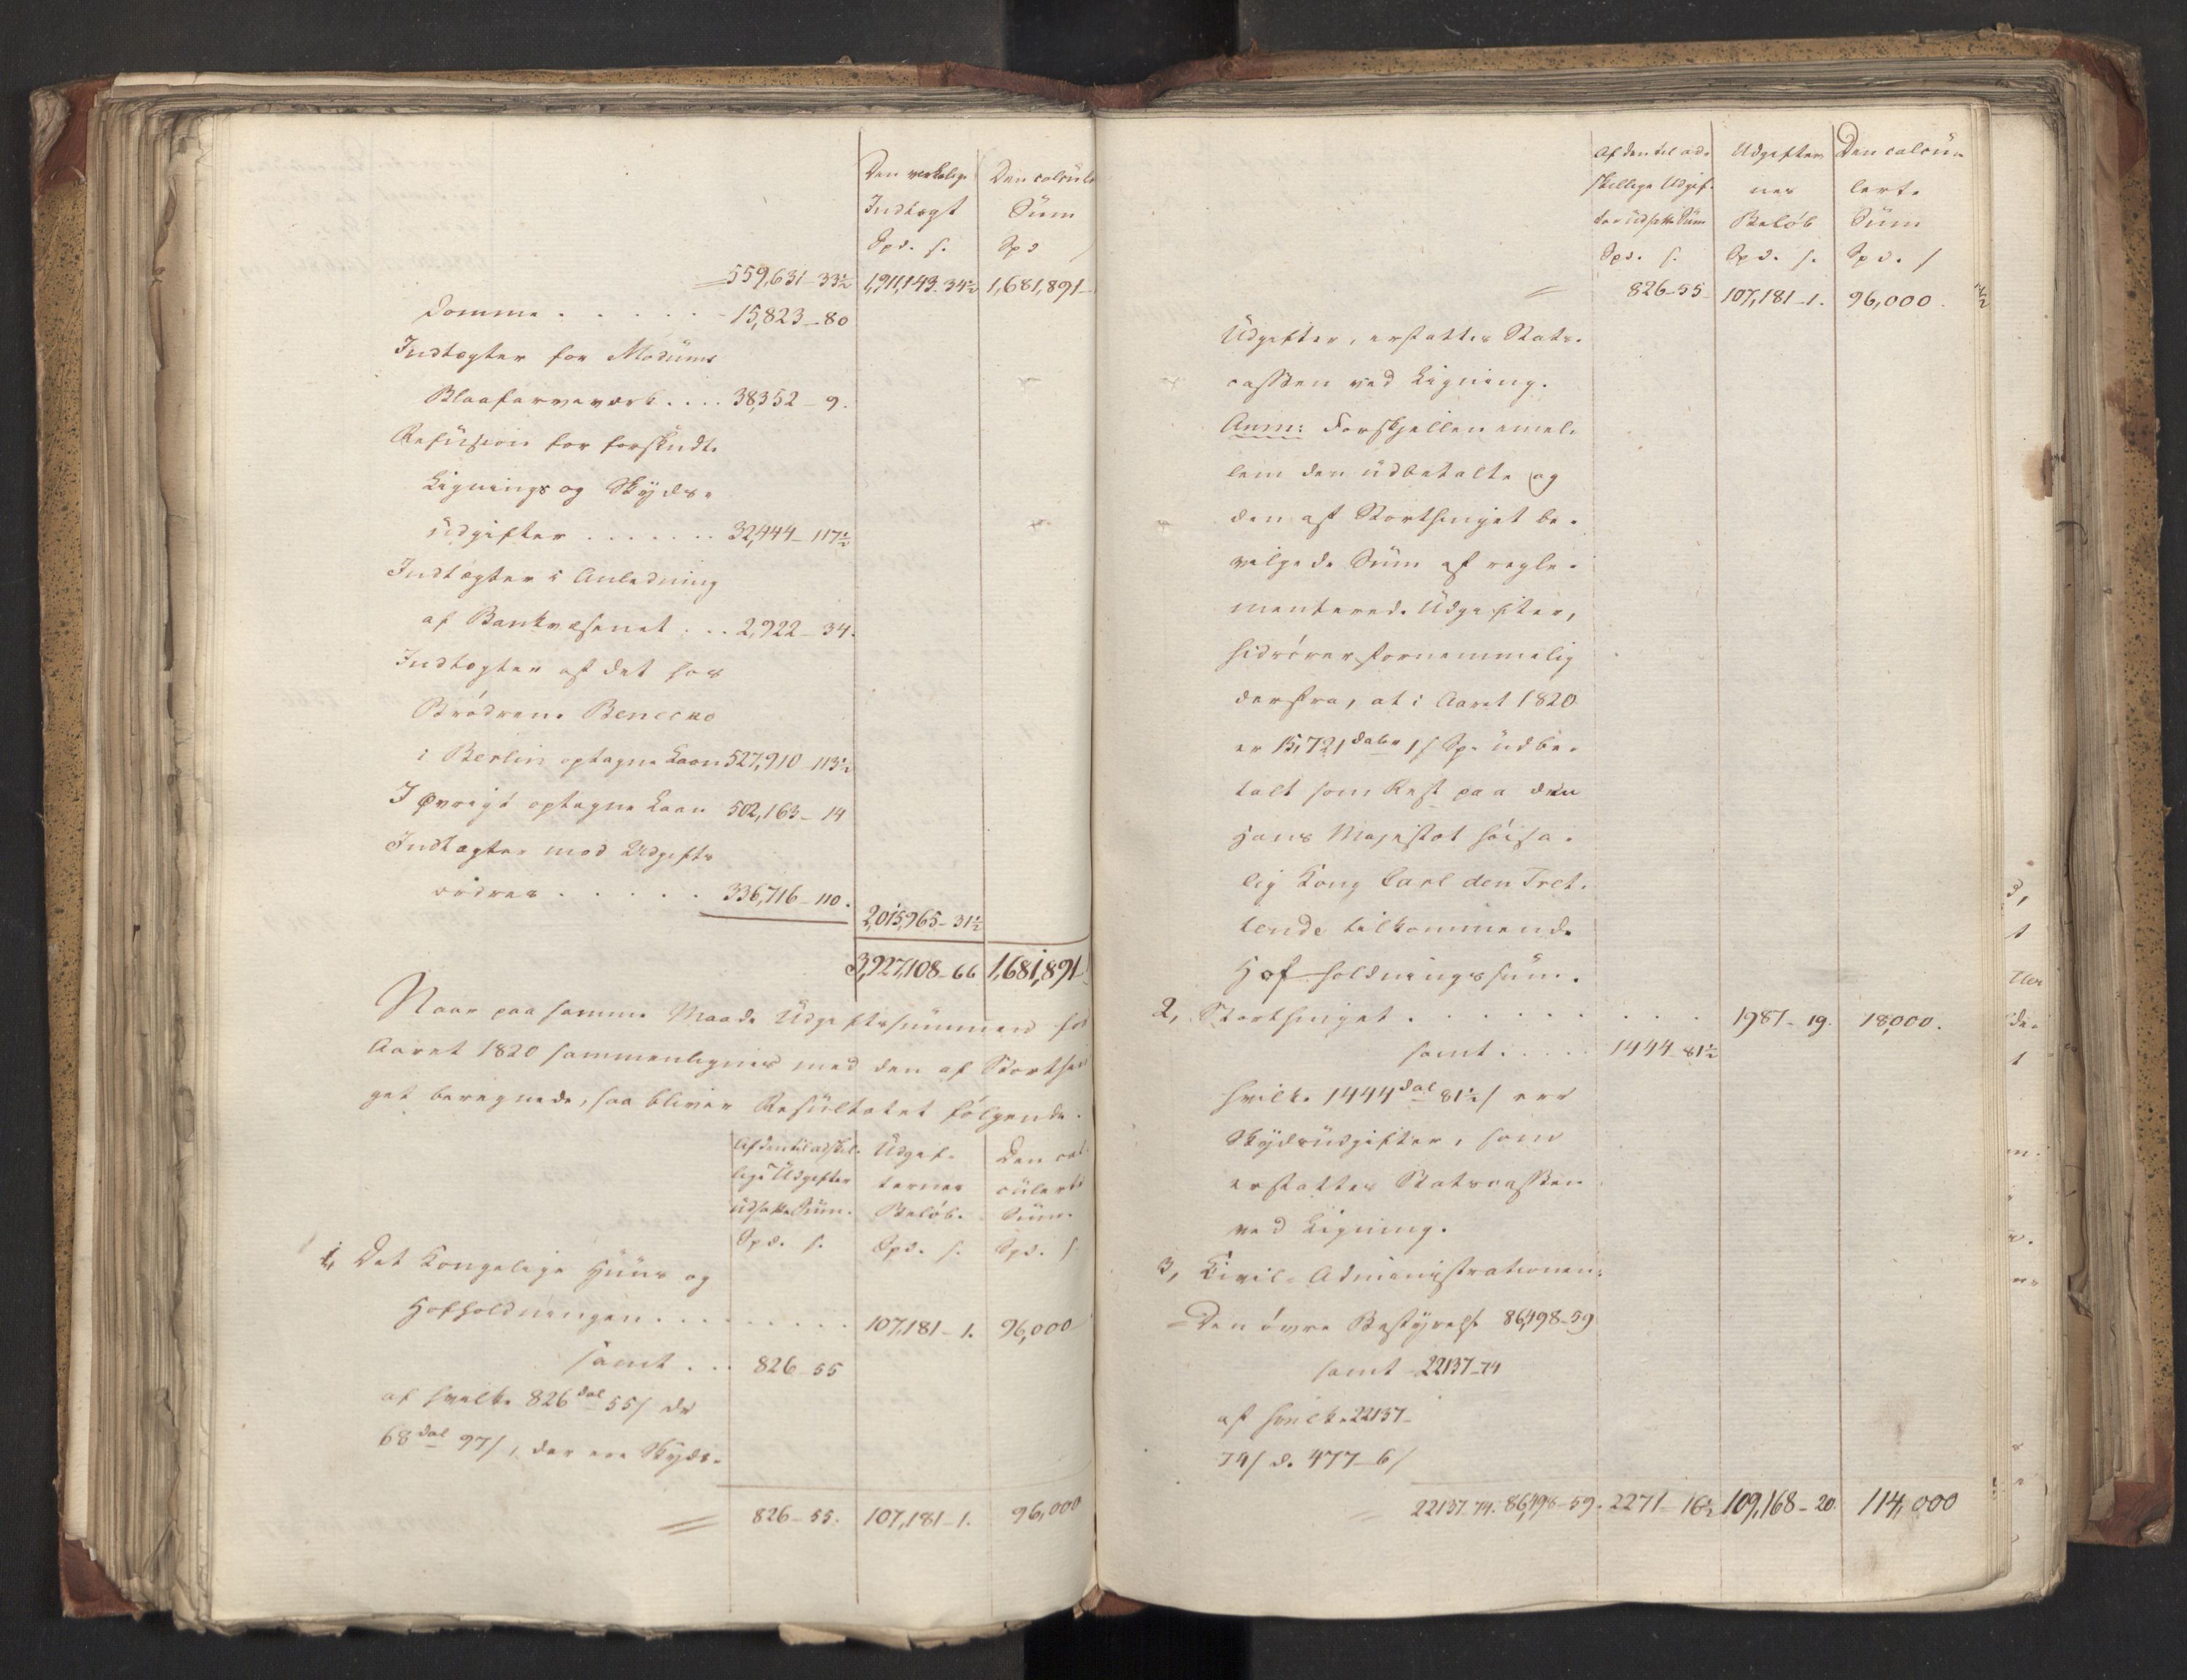 Den virkelige Den calcule
Indtægt Süm
Spd. s. Spd s
559,631-33½ 1,911,143-34½ 1,681,891-
domme . . . . . . 15,823-80
Indtægter for Modüms
Blaafarveværk . . . . 38,352-9.
Refüsion for forskudte
Lignings og Skyds-
üdgifter . . . . . . . 32,444-117½
Indtægter i Anledning
af Bankvæsenet . . . 2,922-34.
Indtægter af det hos
Brödrene Benecke
i Berlin optagne Laan 527,910-113½
I Øvrigt optagne Laan 502,163-14
Indtægter mod Udgifts
ordres . . . . . 336,716-110. 2,015,965-31½
3,927,108-66 1,681,891-
Naar paa samme Maade Üdgiftssümmen for
Aaret 1820 sammenlignes med den af Storthin
get beregnede, saa bliver Resültatet fölgende.
Af den til adskil- Üdgif- Den cal-
lige Üdgifter ternes cülerte
üdsatte Süm. Belöb. Süm.
Spd. s. Spd. s. Spd. s
1, Det Kongelige Hüüs og
Hofholdningen . . . . . . . . . 107,181-1. 96,000-
samt . . . 826-55
af hvilke 826 dal 55 s de
68 dal 97 s, der ere Skyds-
826-55. 107,181-1. 96,000
Af den til ad- Udgifter Den calcü-
skillige Udgif- nes lerte
ter üdsatte Süm Belöb Süm
Spd. s. Spd. s. Spd. s
826-55 107,181-1. 96,000.
Üdgifter, erstattes Stats-
cassen ved Ligning.
Anm: Forskjellen imel-
lem den üdbetalte og
den af Storthinget be-
vilgede Süm af regle-
menterede Üdgifter,
hidrörer fornemmelig
derfra, at i Aaret 1820
er 15,721 daler 1 s Sp. üdbe-
talt som Rest paa den
Hans Majestæt höisa-
lig Kong Carl den Tret-
tende tilkommende
Hof-holdningssüm.
2, Storthinget . . . . . . . . . 1987-19. 18,000.
samt . . . . . 1444-81½
hvilke 1444 dal 81½ s ere
Skydsüdgifter, som
erstattes Statscassen
ved Ligning.
3, Civil-Administrationen:
Den övre Bestyrelse 86,498-59
samt 22137-74
af hvilke 22137-
74 s d. 477-6 s
22137-74. 86,498-59. 2271-16½ 109,168-20 114,000